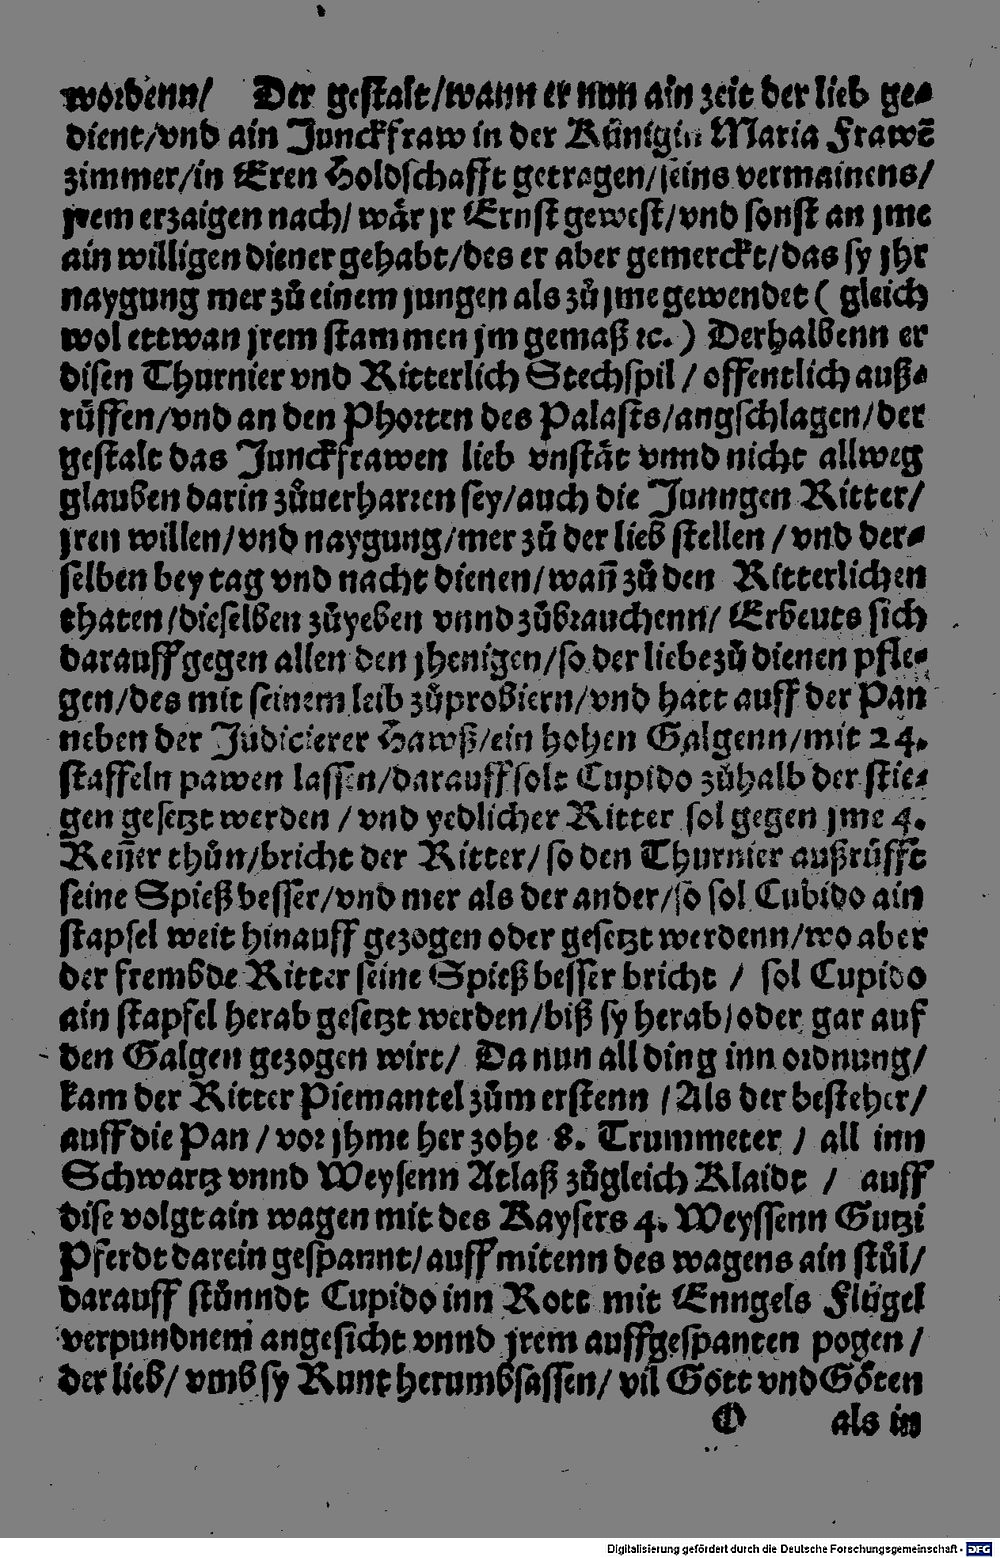 wordenn/ Der gestalt/wann er nun ain zeit der lieb ge⸗
dient/vnd ain Junckfraw in der Künigin Maria Frawẽ
zimmer/in Eren Holdschafft getragen/seins vermainens/
jrem erzaigen nach/ wär jr Ernst gewest/vnd sonst an jme
ain willigen diener gehabt/des er aber gemerckt/das sy jhr
naygung mer zů einem jungen als zů jme gewendet ( gleich
wol ettwan jrem stammen jm gemaß ꝛc. ) Derhalbenn er
disen Thurnier vnd Ritterlich Stechspil / offentlich auß⸗
růffen/vnd an den Phorten des Palasts/angschlagen/der
gestalt das Junckfrawen lieb vnstät vnnd nicht allweg
glauben darin zůuerharren sey/auch die Junngen Ritter/
jren willen/vnd naygung/mer zů der lieb stellen / vnd der⸗
selben bey tag vnd nacht dienen/wañ zů den Ritterlichen
thaten/dieselben zůyeben vnnd zůbrauchenn/ Erbeuts sich
darauff gegen allen den jhenigen/so der liebe zů dienen pfle⸗
gen/des mit seinem leib zůprobiern/vnd hatt auff der Pan
neben der Judicierer Hawß/ein hohen Galgenn/mit 24.
staffeln pawen lassen/darauff solt Cupido zůhalb der stie⸗
gen gesetzt werden / vnd yedlicher Ritter sol gegen jme 4.
Reñer thůn/bricht der Ritter/so den Thurnier außrůfft
seine Spieß besser/vnd mer als der ander/so sol Cubido ain
stapfel weit hinauff gezogen oder gesetzt werdenn/wo aber
der frembde Ritter seine Spieß besser bricht / sol Cupido
ain stapfel herab gesetzt werden/biß sy herab/oder gar auf
den Galgen gezogen wirt/ Da nun all ding inn ordnung/
kam der Ritter Piemantel zům erstenn / Als der besteher/
auff die Pan / vor jhme her zohe 8. Trummeter / all inn
Schwartz vnnd Weysenn Atlaß zůgleich Klaidt / auff
dise volgt ain wagen mit des Kaysers 4. Weyssenn Gutzi
Pferdt darein gespannt/auff mitenn des wagens ain stůl/
darauff stůnndt Cupido inn Rott mit Enngels Flügel
verpundnem angesicht vnnd jrem auffgespanten pogen /
der lieb/ vmb sy Runt herumbsassen/ vil Gött vnd Göten
C als in
Digitalisierung gefördert durch die Deutsche Forschungsgemeinschaft - DFG